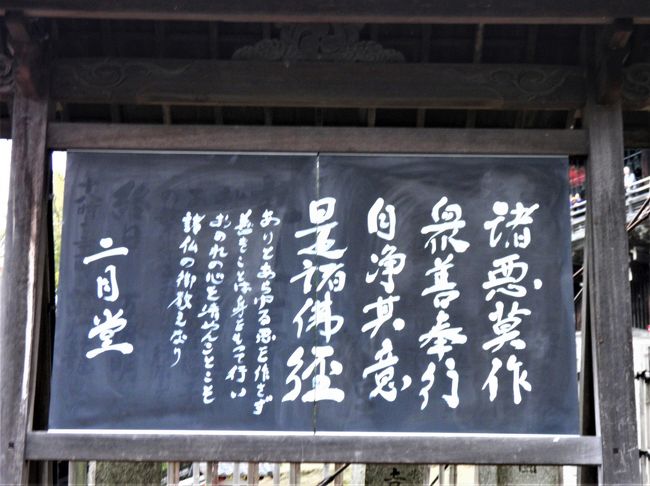 諸悪莫作
衆善奉行
自浄其意
是諸佛径
ありとあらゆる悪を作さず
善きことは身をもって行い
おのれの心を清めんことこそ
諸仏の御教えなり
二月堂